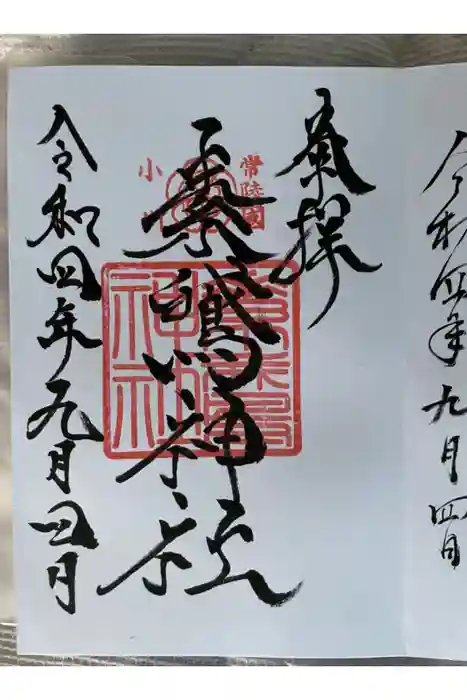 令和四年九月四日
奉拝
常陸國
小
素鵞神社
令和四年九月四日